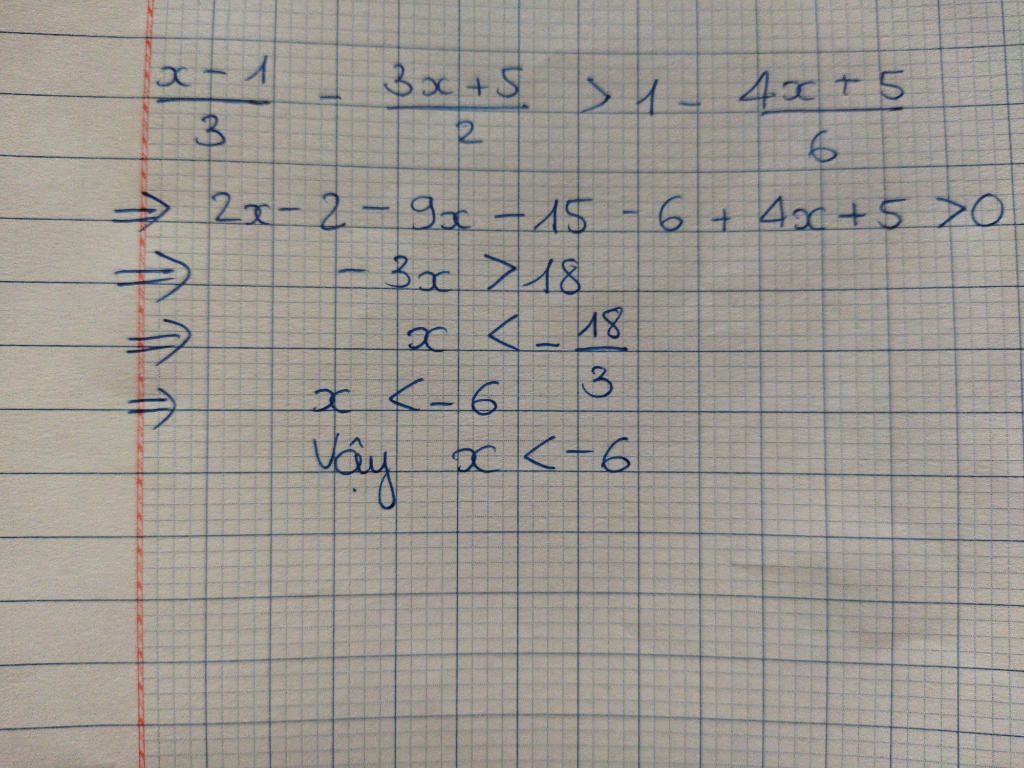 x - 1 / 3 - 3x + 5 / 2 > 1 - 4x + 5 / 6
⇒ 2x - 2 - 9x - 15 - 6 + 4x + 5 > 0
⇒ - 3x > 18
⇒ x < - 18 / 3
⇒ x < - 6
Vậy x < - 6